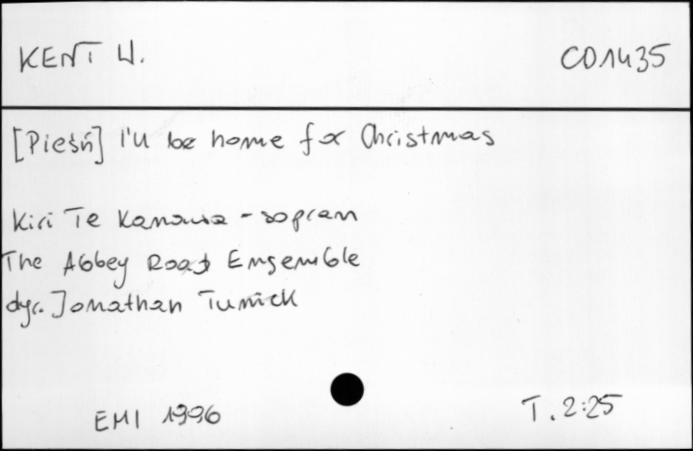 KENT W.
CD1435
[Pieśń] I'll be home for Christmas
Kiri Te Kanawa - sopran
The Abbey Road Ensemble
dyr. Jonathan Tunick
EMI 1996
T. 2:25